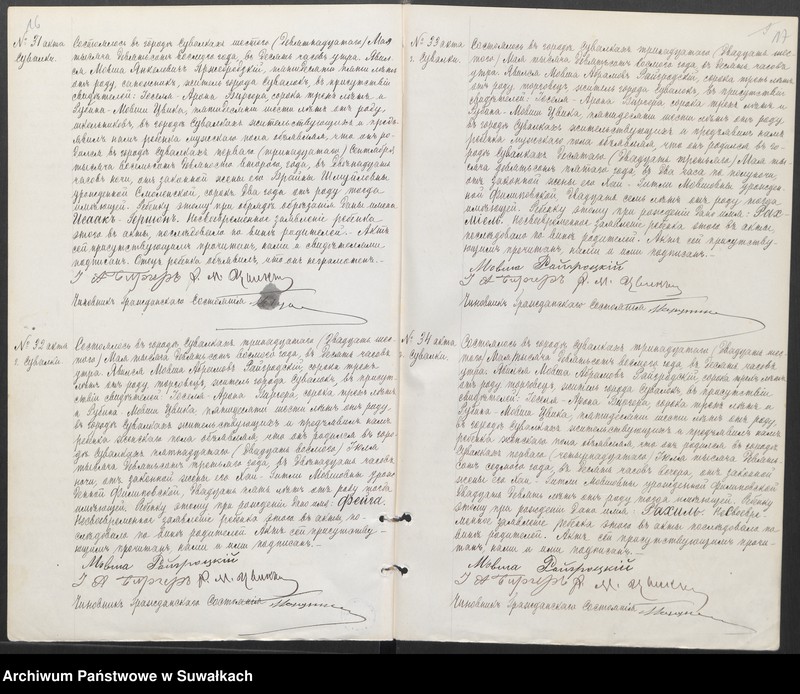 16
№ 31 акта
Сувалки.
Состоялось въ городѣ Сувалкахъ шестого (Девятнадцатаго) Мая
тысяча девятьсотъ восьмого года, въ десять часовъ утра. Явил-
ся Мовша Янкелевичъ пятидесяти пяти лѣтъ
отъ роду, житель города Сувалокъ, въ присутствіи
свидѣтелей: Госеля-Арона Биргера, сорока трехъ лѣтъ и
Рувина-Мовши Цвика, пятидесяти шести лѣтъ отъ роду,
школьниковъ, въ городѣ Сувалкахъ жительствующихъ и предъ-
явилъ намъ ребенка мужескаго пола объявляя, что онъ ро-
дился въ городѣ Сувалкахъ перваго (тринадцатаго) Сентября
тысяча восемьсотъ девяносто второго, года, въ двѣнадцать
часовъ ночи, отъ законной жены его Брайны Шмуиловны
урожденной Смоленской, сорокъ два года отъ роду тогда
имѣющей. Ребенку этому при обрядѣ обрѣзанія даны имена
Исаакъ-Гершонъ. Несвоевременное заявленіе ребенка
этого въ актѣ, послѣдовало по винѣ родителей. - Актъ
сей присутствующимъ прочитанъ, нами и свидѣтелями
подписанъ. Отецъ ребенка объявилъ, что онъ неграмотенъ. -
Г А Биргеръ Р. М. Цвикъ
Чиновникъ Гражданскаго Состоянія
№ 32 акта
г. Сувалки.
Состоялось въ городѣ Сувалкахъ тринадцатаго (Двадцать шес-
того) Мая тысяча девятьсотъ восьмого года, въ десять часовъ
утра. Явился Мовша Абрамовъ Райгродскій, сорока трехъ
лѣтъ отъ роду, торговецъ, житель города Сувалокъ, въ присут-
ствіи свидѣтелей: Госеля-Арона Биргера, сорока трехъ лѣтъ
и Рувина-Мовши Цвика пятидесяти шести лѣтъ отъ роду,
въ городѣ Сувалкахъ жительствующихъ и предъявилъ намъ
ребенка женскаго пола объявляя, что онъ родился въ горо-
дѣ Сувалкахъ пятнадцатаго (Двадцать восьмого) Іюля
тысяча девятьсотъ третьяго года, въ двѣнадцать часовъ
ночи, отъ законной жены его Леи-Гитли Мовшовны урож-
денной Филиповской, двадцать пять лѣтъ отъ роду тогда
имѣющей. Ребенку этому при рожденіи дано имя: Фейга.
Несвоевременное заявленіе ребенка этого въ актѣ, по-
слѣдовало по винѣ родителей. Актъ сей присутству-
ющимъ прочитанъ нами и ими подписанъ. -
Мовша Райгроцкій
Г А Биргеръ Р. М. Цвикъ
Чиновникъ Гражданскаго Состоянія
17
№ 33 акта
г. Сувалки.
Состоялось въ городѣ Сувалкахъ тринадцатаго (Двадцать шес-
того) Мая тысяча девятьсотъ восьмого года, въ десять часовъ
утра. Явился Мовша Абрамовъ Райгродскій, сорока трехъ лѣтъ
отъ роду, торговецъ, житель города Сувалокъ, въ присутствіи
свидѣтелей: Госеля-Арона Биргера сорока трехъ лѣтъ и
Рувина-Мовши Цвика, пятидесяти шести лѣтъ отъ роду,
въ городѣ Сувалкахъ жительствующихъ и предъявилъ намъ
ребенка мужескаго пола объявляя, что онъ родился въ го-
родѣ Сувалкахъ десятаго (Двадцать третьяго) Мая ты-
сяча девятьсотъ пятаго года, въ два часа по полуночи,
отъ законной жены его Леи-Гитли Мовшовны урожден-
ной Филиповской, двадцать семь лѣтъ отъ роду тогда
имѣющей. Ребенку этому при рожденіи дано имя: Рах-
міель. Несвоевременное заявленіе ребенка этого въ актѣ,
послѣдовало по винѣ родителей. Актъ сей присутству-
ющимъ прочитанъ нами и ими подписанъ. -
Мовша Райгроцкій
Г А Биргеръ Р. М. Цвикъ
Чиновникъ Гражданскаго Состоянія
№ 34 акта
г. Сувалки.
Состоялось въ городѣ Сувалкахъ тринадцатаго (Двадцать шес-
того) Мая тысяча девятьсотъ восьмого года, въ десять часовъ
утра. Явился Мовша Абрамовъ Райгродскій, сорока трехъ лѣтъ
отъ роду торговецъ, житель города Сувалокъ, въ присутствіи
свидѣтелей: Госеля-Арона Биргера, сорока трехъ лѣтъ и
Рувина-Мовши Цвика, пятидесяти шести лѣтъ отъ роду,
въ городѣ Сувалкахъ жительствующихъ и предъявилъ намъ
ребенка женскаго пола объявляя, что онъ родился въ городѣ
Сувалкахъ перваго (четырнадцатаго) Іюля тысяча девять-
сотъ седьмого года, въ десять часовъ вечера, отъ законной
жены его Леи-Гитли Мовшовны урожденной Филиповской
двадцать девять лѣтъ отъ роду тогда имѣющей. Ребенку
этому при рожденіи дано имя: Рахиль. Несвоевре-
менное заявленіе ребенка этого въ актѣ послѣдовало по
винѣ родителей. Актъ сей присутствующимъ прочи-
танъ, нами и ими подписанъ. -
Мовша Райгроцкій
Г А Биргеръ Р. М. Цвикъ
Чиновникъ Гражданскаго Состоянія
Archiwum Państwowe w Suwałkach